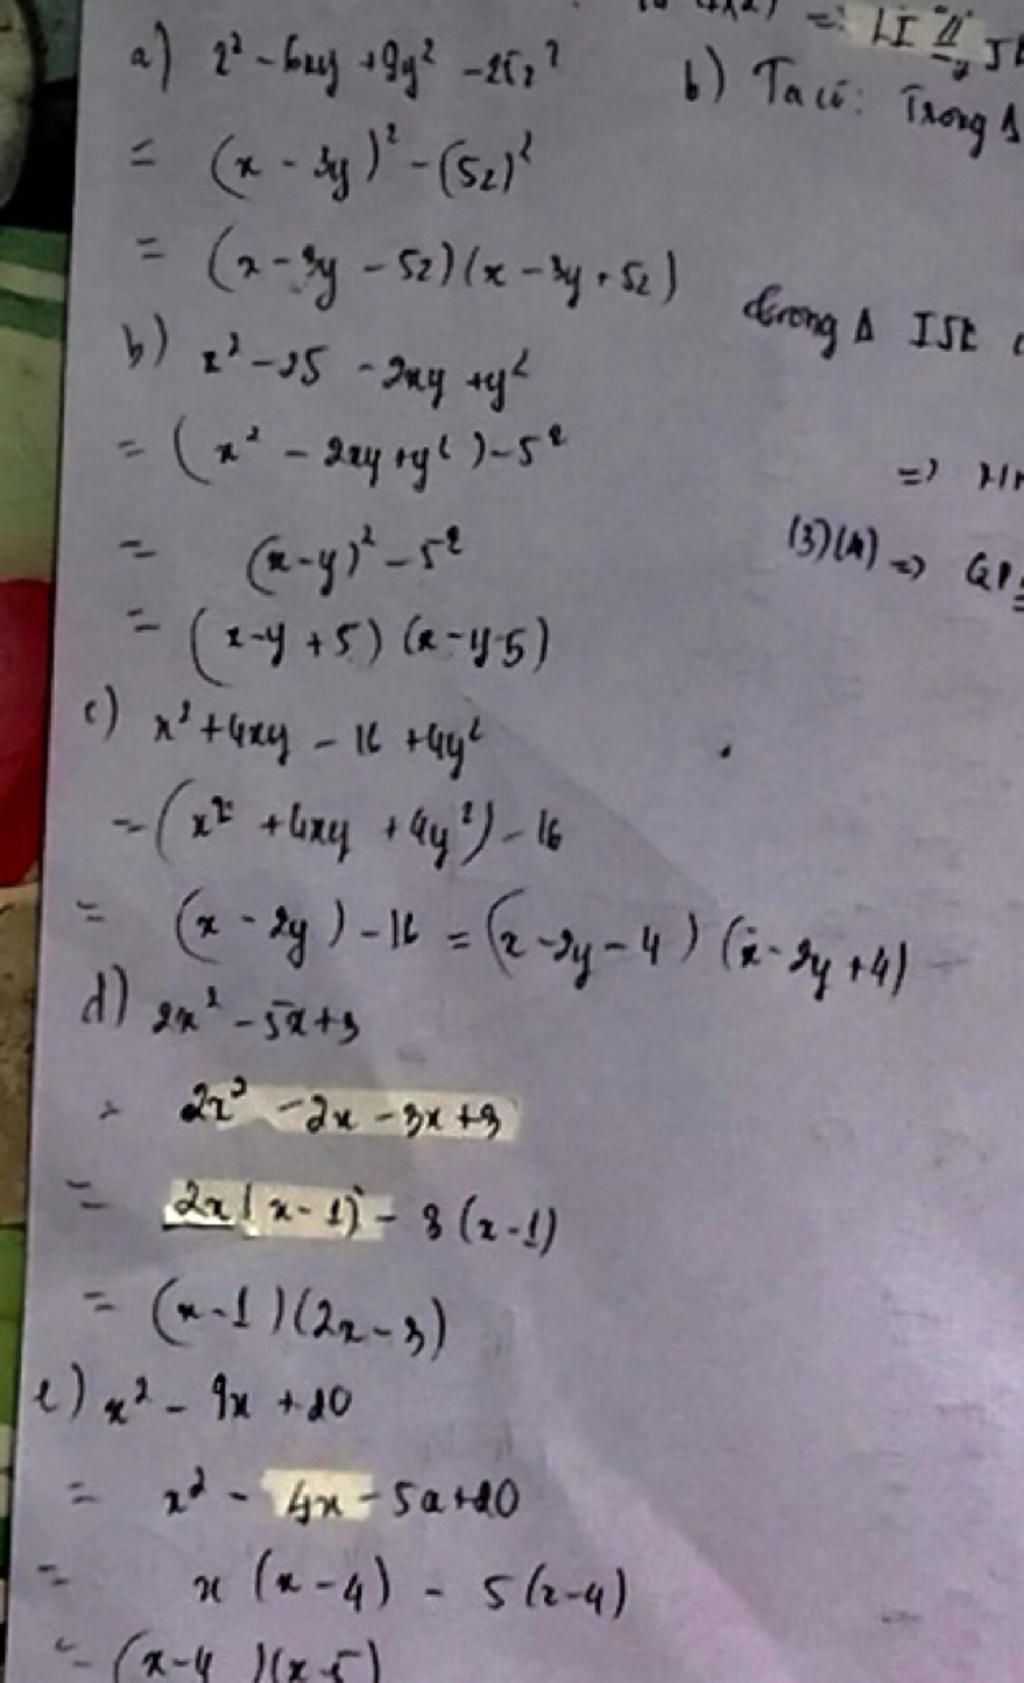 a) x² - 6xy + 9y² - 25z²
= (x - 3y)² - (5z)²
= (x - 3y - 5z)(x - 3y + 5z)
b) x² - 25 - 2xy + y²
= (x² - 2xy + y²) - 5²
= (x - y)² - 5²
= (x - y + 5)(x - y - 5)
c) x² + 4xy - 16 + 4y²
= (x² + 4xy + 4y²) - 16
= (x - 2y) - 16 = (x - 2y - 4)(x - 2y + 4)
d) 2x² - 5x + 3
= 2x² - 2x - 3x + 3
= 2x(x - 1) - 3(x - 1)
= (x - 1)(2x - 3)
e) x² - 9x + 20
= x² - 4x - 5x + 20
= x(x - 4) - 5(x - 4)
= (x - 4)(x - 5)
=> LI //
b) Ta có: Trong Δ
trong Δ ISK
=>
(3)(4) =>